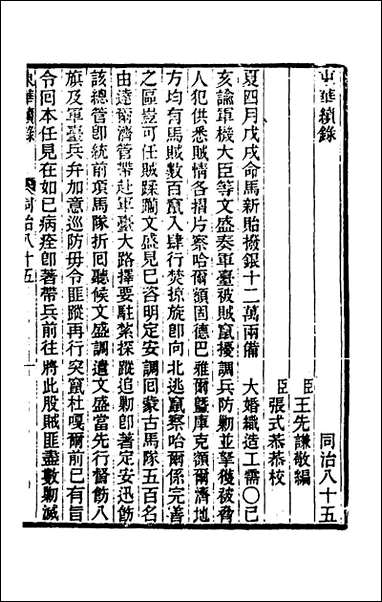 東華續錄
同治八十五
臣王先謙敬編
臣張式恭恭校
夏四月戊戌命馬新貽撥銀十二萬兩備　大婚織造工需〇己
亥諭軍機大臣等文盛奏軍臺被賊竄擾調兵防勦並拏獲被脅
人犯供悉賊情各摺片察哈爾額固德巴雅爾曁庫克額爾濟地
方均有馬賊數百竄入肆行焚掠旋卽向北逃竄察哈爾係完善
之區豈可任賊蹂躪文盛見已咨明定安調回蒙古馬隊五百名
由達爾濟管帶赴軍臺大路擇要駐紮探蹤追勦卽著定安迅飭
該總管卽統前項馬隊折回聽候文盛調遣文盛當先行督飭八
旗及軍臺兵弁加意巡防毋令匪蹤再行突竄杜嘎爾前已有旨
令回本任見在如已病痊卽著帶兵前往將此股賊匪盡數勦滅
東華續錄
同治八十五
一